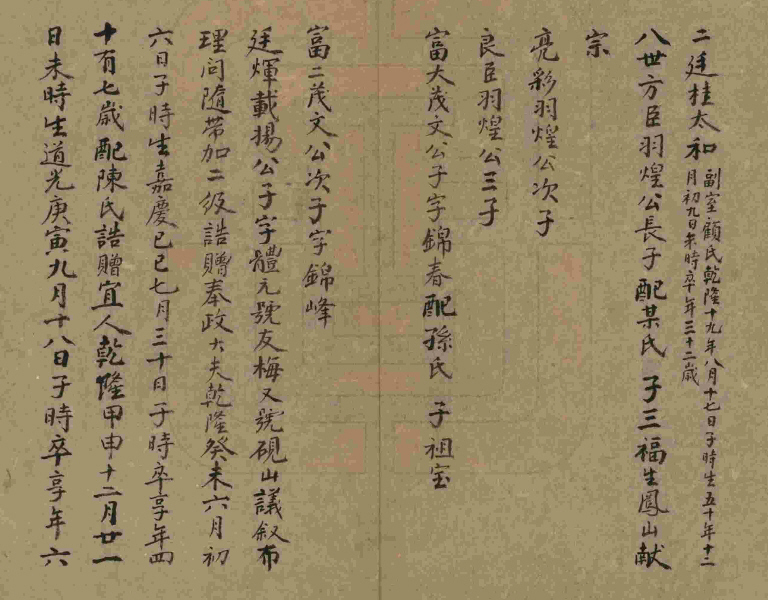 二廷桂太和副室顧氏乾隆十九年八月十七日子時生五十年十二
月初九日未時卒年三十二歲
八世方臣羽煌公長子配某氏 子三福生鳳山献
宗
亮彩羽煌公次子
良臣羽煌公三子
富大茂文公子字錦春配孫氏 子祖宝
富二茂文公次子字錦峰
廷煇載揚公子字體元號友梅又號硯山議叙布
理问隨带加二级誥贈奉政大夫乾隆癸未六月初
六日子時生嘉慶己巳七月三十日子時卒享年四
十有七歲配陳氏誥贈宜人乾隆甲申十二月廿一
日未時生道光庚寅九月十八日子時卒享年六